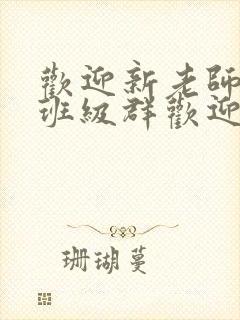 歡迎新老師
班級群歡迎
珊瑚蔓